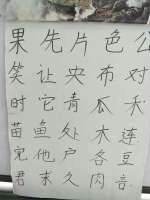 果先片色公
笑让央布对
时它青瓜禾
苗鱼处木连
完他户各豆
君求久肉音